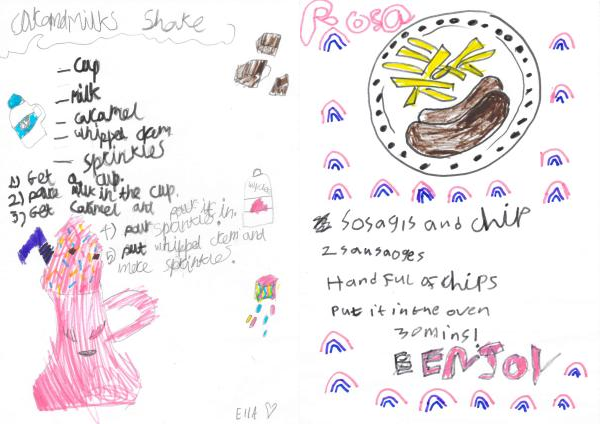 Shake
Cup
Milk
caramel
whipped crem
sprinkles
1) Get a cup.
2) milk in the cup.
3) Get caramel and
put it in.
4) put sprinkles in.
5) put whipped crem and
more sprinkles.
Ella
Rosa
Sosagis and chip
2 sausages
Handful of chips
Put it in the oven
30 mins!
ENJOY